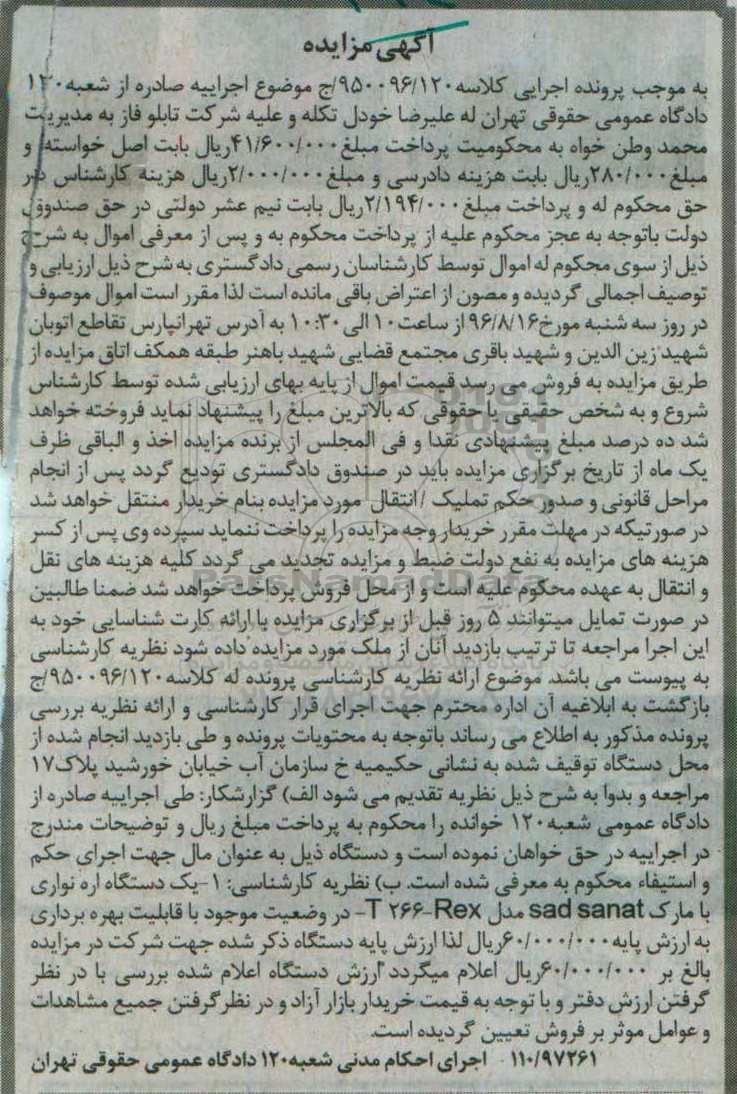 آگهی مزایده
به موجب پرونده اجرایی کلاسه۹۵۰۰۹۶/۱۲۰/ج موضوع اجراییه صادره از شعبه۱۲۰
دادگاه عمومی حقوقی تهران له علیرضا خودل تکله و علیه شرکت تابلو فاز به مدیریت
محمد وطن خواه به محکومیت پرداخت مبلغ۴۱/۶۰۰/۰۰۰ریال بابت اصل خواسته و
مبلغ۲۸۰/۰۰۰ریال بابت هزینه دادرسی و مبلغ۲/۰۰۰/۰۰۰ریال هزینه کارشناس در
حق محکوم له و پرداخت مبلغ۲/۱۹۴/۰۰۰ریال بابت نیم عشر دولتی در حق صندوق
دولت باتوجه به عجز محکوم علیه از پرداخت محکوم به و پس از معرفی اموال به شرح
ذیل از سوی محکوم له اموال توسط کارشناسان رسمی دادگستری به شرح ذیل ارزیابی و
توصیف اجمالی گردیده و مصون از اعتراض باقی مانده است لذا مقرر است اموال موصوف
در روز سه شنبه مورخ۹۶/۸/۱۶از ساعت۱۰الی۱۰:۳۰ به آدرس تهرانپارس تقاطع اتوبان
شهید زین الدین و شهید باقری مجتمع قضایی شهید باهنر طبقه همکف اتاق مزایده از
طریق مزایده به فروش می رسد قیمت اموال از پایه بهای ارزیابی شده توسط کارشناس
شروع و به شخص حقیقی یا حقوقی که بالاترین مبلغ را پیشنهاد نماید فروخته خواهد
شد ده درصد مبلغ پیشنهادی نقدا و فی المجلس از برنده مزایده اخذ و الباقی ظرف
یک ماه از تاریخ برگزاری مزایده باید در صندوق دادگستری تودیع گردد پس از انجام
مراحل قانونی و صدور حکم تملیک /انتقال مورد مزایده بنام خریدار منتقل خواهد شد
در صورتیکه در مهلت مقرر خریدار وجه مزایده را پرداخت ننماید سپرده وی پس از کسر
هزینه های مزایده به نفع دولت ضبط و مزایده تجدید می گردد کلیه هزینه های نقل
ParsNamadData
و انتقال به عهده محکوم علیه است و از محل فروش پرداخت خواهد شد ضمنا طالبین
در صورت تمایل میتوانند ۵ روز قبل از برگزاری مزایده با ارائه کارت شناسایی خود به
این اجرا مراجعه تا ترتیب بازدید آنان از ملک مورد مزایده داده شود نظریه کارشناسی
به پیوست می باشد. موضوع ارائه نظریه کارشناسی پرونده له کلاسه۹۵۰۰۹۶/۱۲۰/ج
بازگشت به ابلاغیه آن اداره محترم جهت اجرای قرار کارشناسی و ارائه نظریه بررسی
پرونده مذکور به اطلاع می رساند باتوجه به محتویات پرونده و طی بازدید انجام شده از
محل دستگاه توقیف شده به نشانی حکیمیه خ سازمان آب خیابان خورشید پلاک۱۷
مراجعه و بدوا به شرح ذیل نظریه تقدیم می شود الف) گزارشکار: طی اجراییه صادره از
دادگاه عمومی شعبه۱۲۰ خوانده را محکوم به پرداخت مبلغ ریال و توضیحات مندرج
در اجراییه در حق خواهان نموده است و دستگاه ذیل به عنوان مال جهت اجرای حکم
و استیفاء محکوم به معرفی شده است. ب) نظریه کارشناسی: ۱-یک دستگاه اره نواری
با مارک sad sanat مدل T ۲۶۶-Rex- در وضعیت موجود با قابلیت بهره برداری
به ارزش پایه۶۰/۰۰۰/۰۰۰ریال لذا ارزش پایه دستگاه ذکر شده جهت شرکت در مزایده
بالغ بر ۶۰/۰۰۰/۰۰۰ریال اعلام میگردد ارزش دستگاه اعلام شده بررسی با در نظر
گرفتن ارزش دفتر و با توجه به قیمت خریدار بازار آزاد و در نظرگرفتن جمیع مشاهدات
و عوامل موثر بر فروش تعیین گردیده است.
۱۱۰/۹۷۲۶۱ اجرای احکام مدنی شعبه۱۲۰ دادگاه عمومی حقوقی تهران